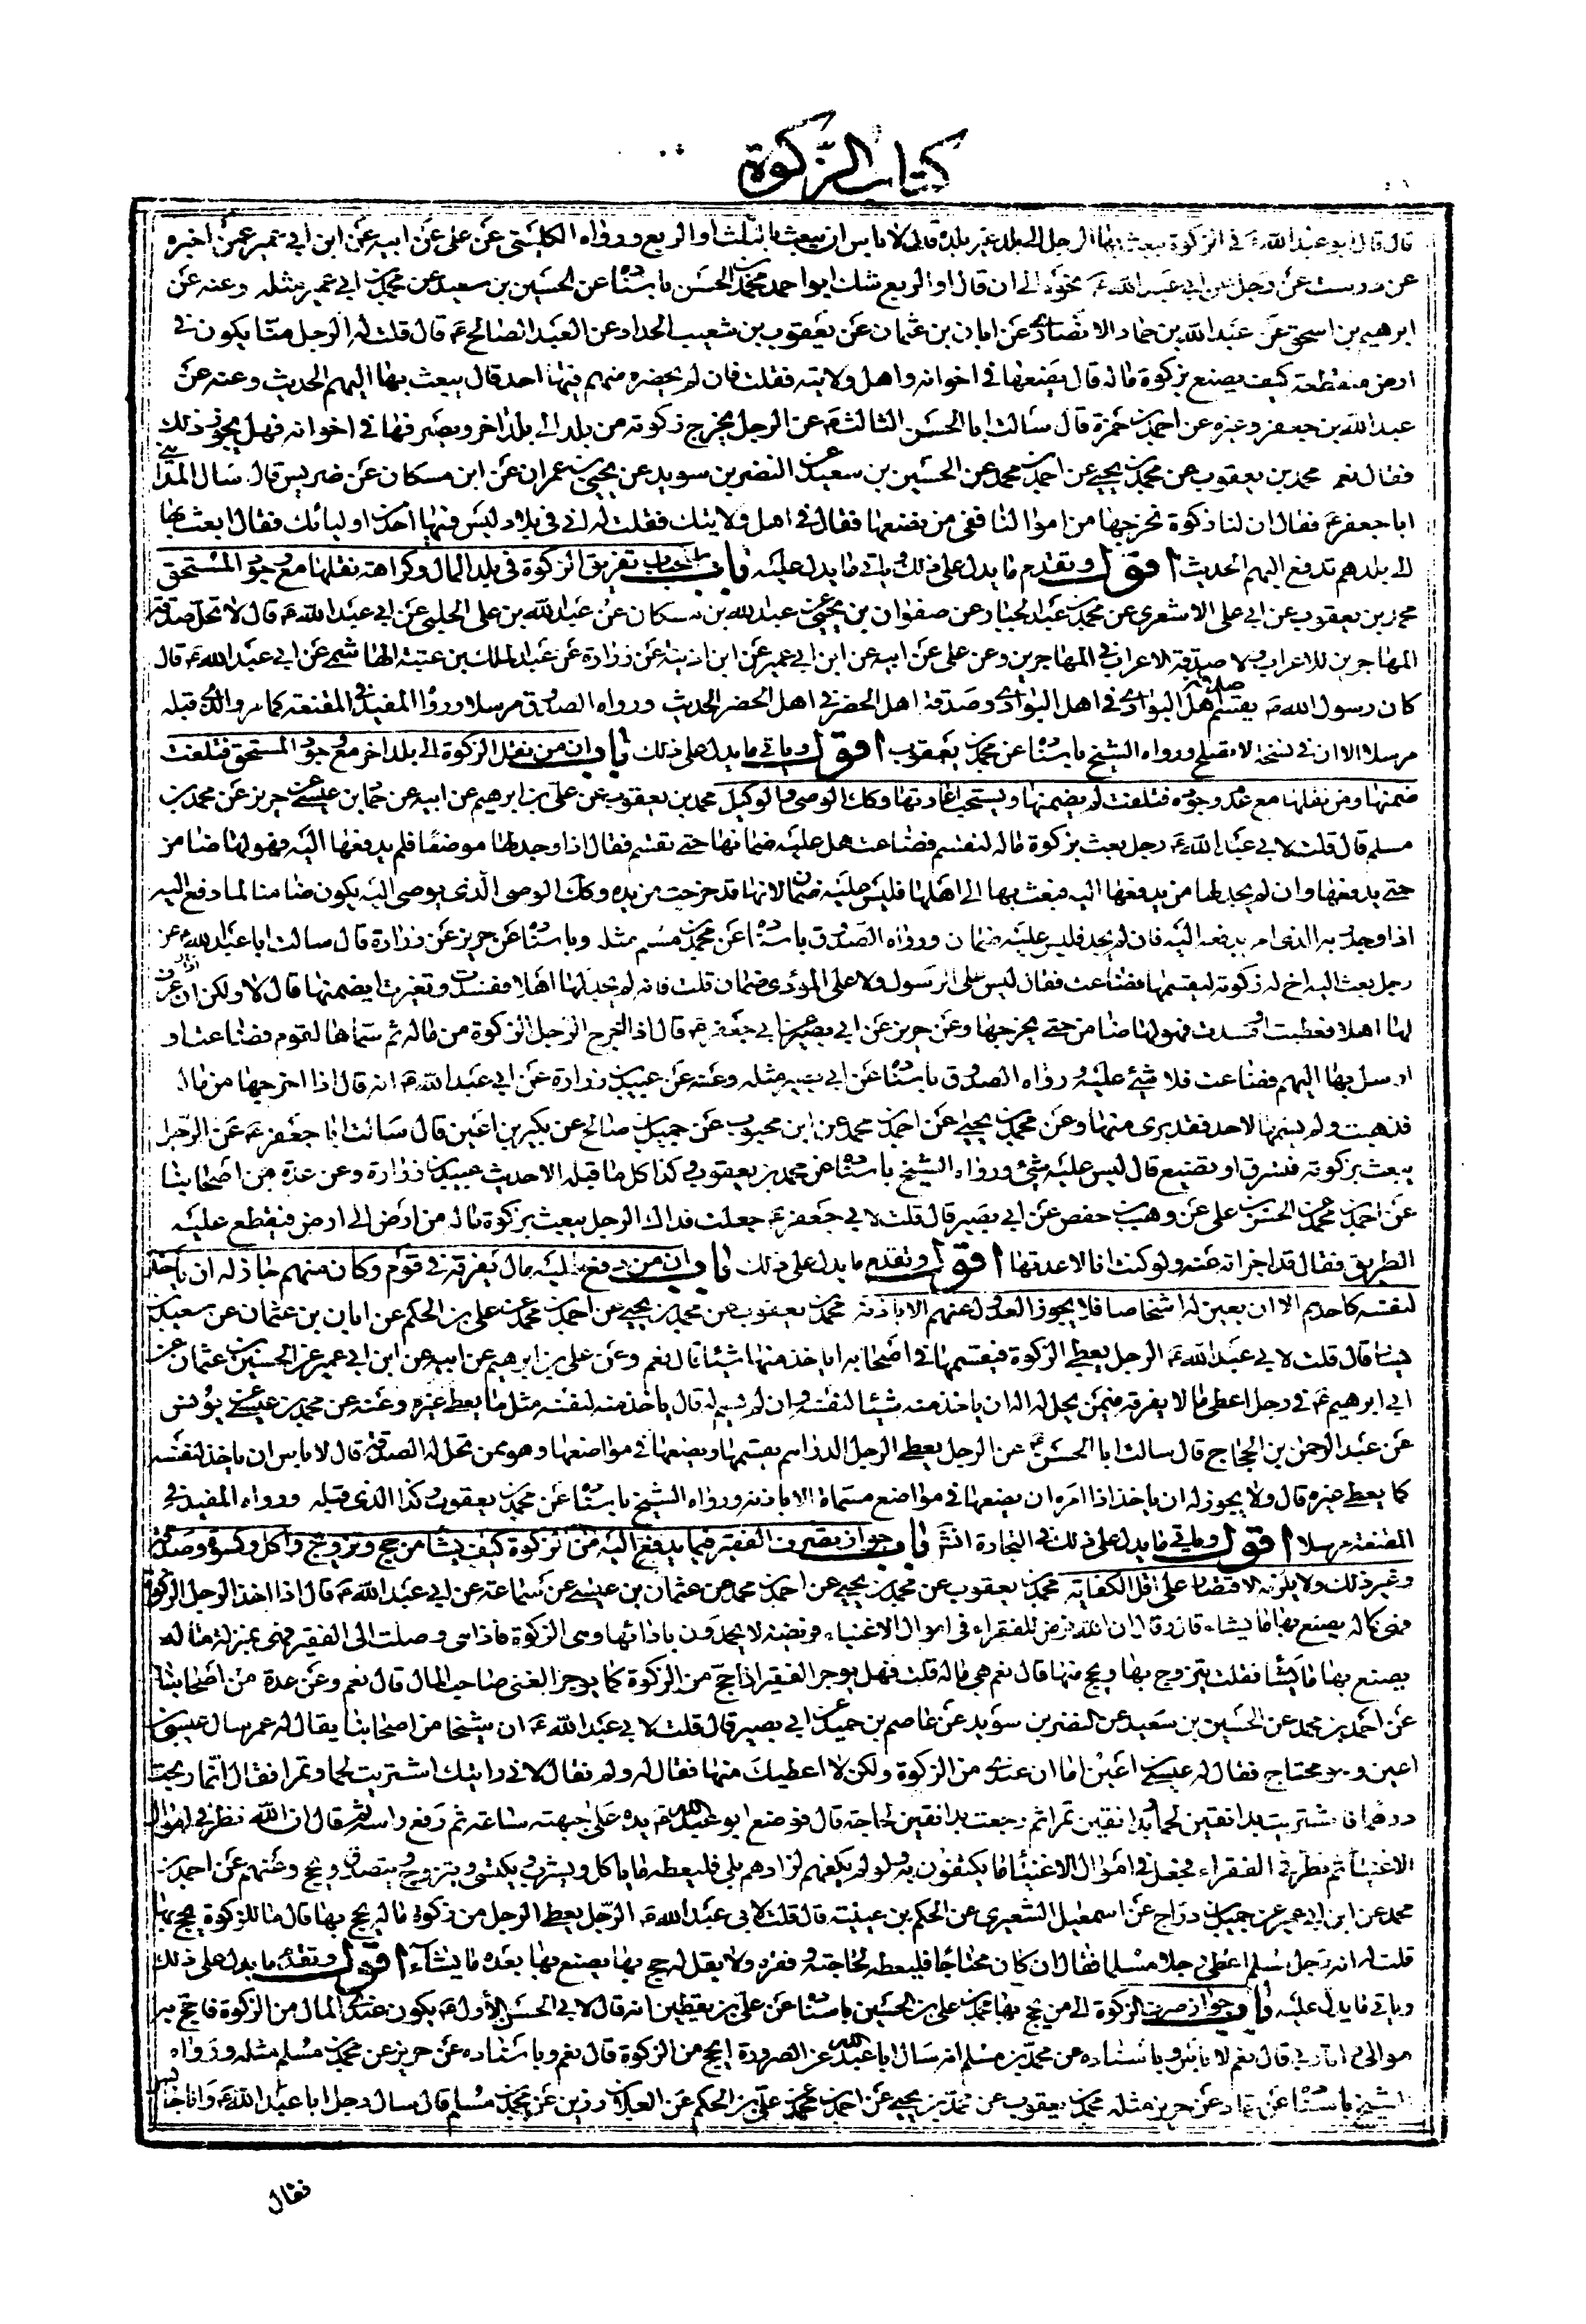 كتاب الزكوة
قال قال ابو عبد الله ع في الزكوة يبعث بها الرجل الى بلد غير بلده قال لا باس ان يبعث بالثلث او الربع ورواه الكليني عن علي عن ابيه عن ابن ابي عمير عمن اخبره
عن درست عن رجل عن ابي عبد الله ع نحوه الى ان قال او الربع شك ابو احمد محمد بن الحسن باسناده عن الحسين بن سعيد عن محمد بن ابي عمير مثله وعنه عن
ابرهيم بن اسحق عن عبد الله بن حماد الانصاري عن ابان بن عثمان عن يعقوب بن شعيب الحداد عن العبد الصالح ع قال قلت له الرجل منا يكون في
ارض منقطعة كيف يصنع بزكوة ماله قال يضعها في اخوانه واهل ولايته فقلت فان لم يحضره منهم فيها احد قال يبعث بها اليهم الحديث وعنه عن
عبد الله بن جعفر وغيره عن احمد بن حمزة قال سالت ابا الحسن الثالث ع عن الرجل يخرج زكوته من بلد الى بلد اخر ويصرفها في اخوانه فهل يجوز ذلك
فقال نعم محمد بن يعقوب عن محمد بن يحيى عن احمد بن محمد عن الحسين بن سعيد عن النضر بن سويد عن يحيى بن عمران عن ابن مسكان عن ضريس قال سال المدائني
ابا جعفر ع فقال ان لنا زكوة نخرجها من اموالنا ففي من نضعها فقال في اهل ولايتك فقلت له اني في بلاد ليس فيها احد من اوليائك فقال ابعث بها
الى بلدهم تدفع اليهم الحديث اقول وتقدم ما يدل على ذلك وياتي ما يدل عليه باب استحباب تفريق الزكوة في بلد المال وكراهة نقلها مع وجود المستحق
محمد بن يعقوب عن ابي علي الاشعري عن محمد بن عبد الجبار عن صفوان بن يحيى عن عبد الله بن مسكان عن عبد الله بن علي الحلبي عن ابي عبد الله ع قال لا تحل صدقة
المهاجرين للاعراب ولا صدقة الاعراب في المهاجرين وعن علي عن ابيه عن ابن ابي عمير عن ابن اذينة عن زرارة عن عبد الملك بن عتبة الهاشمي عن ابي عبد الله ع قال
كان رسول الله ص يقسم صدقة اهل البوادي في اهل البوادي وصدقة اهل الحضر في اهل الحضر الحديث ورواه الصدوق مرسلا وروا المفيد في المقنعة كما مر والذي قبله
مرسلا الا ان في نسخة لا تصلح ورواه الشيخ باسناده عن محمد بن يعقوب اقول وياتي ما يدل على ذلك باب ان من نقل الزكوة الى بلد اخر مع وجود المستحق فتلفت
ضمنها ومن نقلها مع عدم وجوده فتلفت لم يضمنها ويستحب اعادتها وكذا الوصي والوكيل محمد بن يعقوب عن علي بن ابرهيم عن ابيه عن حماد بن عيسى عن حريز عن محمد بن
مسلم قال قلت لابي عبد الله ع رجل بعث بزكوة ماله لتقسم فضاعت هل عليه ضمانها حتى تقسم فقال اذا وجد لها موضعا فلم يدفعها اليه فهو لها ضامن
حتى يدفعها وان لم يجد لها من يدفعها اليه فبعث بها الى اهلها فليس عليه ضمان لانها قد خرجت من يده وكذلك الوصي الذي يوصى اليه يكون ضامنا لما دفع اليه
اذا وجد ربه الذي امر بدفعه اليه فان لم يجد فليس عليه ضمان ورواه الصدوق باسناده عن محمد بن مسلم مثله وباسناده عن حريز عن زرارة قال سالت ابا عبد الله ع عن
رجل بعث اليه اخ له زكوته ليقسمها فضاعت فقال ليس على الرسول ولا على المؤدي ضمان قلت فانه لم يجد لها اهلا ففسدت وتغيرت ايضمنها قال لا ولكن ان اذا عرف
لها اهلا فعطبت او فسدت فهو لها ضامن حتى يخرجها وعن حريز عن ابي بصير عن ابي جعفر ع قال اذا اخرج الرجل الزكوة من ماله ثم سماها لقوم فضاعت او
ارسل بها اليهم فضاعت فلا شيء عليه ورواه الصدوق باسناده عن ابي بصير مثله وعنه عن عبيد بن زرارة عن ابي عبد الله ع انه قال اذا اخرجها من ماله
فذهبت ولم يسمها لاحد فقد برئ منها وعن محمد بن يحيى عن احمد بن محمد عن ابن محبوب عن جميل بن صالح عن بكير بن اعين قال سالت ابا جعفر ع عن الرجل
يبعث بزكوته فتسرق او تضيع قال ليس عليه شئ ورواه الشيخ باسناده عن محمد بن يعقوب وكذا كل ما قبله الا حديث عبيد بن زرارة وعن عدة من اصحابنا
عن احمد بن محمد عن الحسن بن علي عن وهيب بن حفص عن ابي بصير قال قلت لابي جعفر ع جعلت فداك الرجل يبعث بزكوة ماله من ارض الى ارض فيقطع عليه
الطريق فقال قد اجزاته عنه ولو كنت انا لاعدتها اقول وتقدم ما يدل على ذلك باب ان من دفع اليه مال يفرقه في قوم وكان منهم جاز له ان ياخذ
لنفسه كاحدهم الا ان يعين له اشخاصا فلا يجوز العدول عنهم الا باذنه محمد بن يعقوب عن محمد بن يحيى عن احمد بن محمد عن علي بن الحكم عن ابان بن عثمان عن سعيد بن
يسار قال قلت لابي عبد الله ع الرجل يعطى الزكوة فيقسمها في اصحابه اياخذ منها شيئا قال نعم وعن علي بن ابرهيم عن ابيه عن ابن ابي عمير عن الحسين بن عثمان عن
ابي ابرهيم ع في رجل اعطي مالا يفرقه فيمن يحل له اله ان ياخذ منه شيئا لنفسه وان لم يسم له قال ياخذ منه لنفسه مثل ما يعطي غيره وعنه عن محمد بن عيسى عن يونس
عن عبد الرحمن بن الحجاج قال سالت ابا الحسن ع عن الرجل يعطي الرجل الدراهم يقسمها ويضعها في مواضعها وهو ممن تحل له الصدقة قال لا باس ان ياخذ لنفسه
كما يعطي غيره قال ولا يجوز له ان ياخذ اذا امره ان يضعها في مواضع مسماة الا باذنه ورواه الشيخ باسناده عن محمد بن يعقوب وكذا الذي قبله ورواه المفيد في
المقنعة مرسلا اقول وياتي ما يدل على ذلك في التجارة انش باب جواز تصرف الفقير فيما يدفع اليه من الزكوة كيف يشا من حج وتزويج واكل وكسوة وصدقة
وغير ذلك ولا يلزمه الاقتصار على اقل الكفاية محمد بن يعقوب عن محمد بن يحيى عن احمد بن محمد عن عثمان بن عيسى عن سماعة عن ابي عبد الله ع قال اذا اخذ الرجل الزكوة
فهي كماله يصنع بها ما يشاء قال وقال ان الله فرض للفقراء في اموال الاغنياء فريضة لا يحمدون بادائها وهي الزكوة فاذا هي وصلت الى الفقير فهي بمنزلة ماله
يصنع بها ما يشا فقلت يتزوج بها ويحج منها قال نعم هي ماله قلت فهل يوجر الفقير اذا حج من الزكوة كما يوجر الغني صاحب المال قال نعم وعن عدة من اصحابنا
عن احمد بن محمد عن الحسين بن سعيد عن النضر بن سويد عن عاصم بن حميد عن ابي بصير قال قلت لابي عبد الله ع ان شيخا من اصحابنا يقال له عمر سال عيسى بن
اعين وهو محتاج فقال له عيسى بن اعين اما ان عندي من الزكوة ولكن لا اعطيك منها فقال له ولم فقال لاني رايتك اشتريت لحما وتمرا فقال انما ربحت
درهما فاشتريت بدانقين لحما وبدانقين تمرا ثم رجعت بدانقين لحاجة قال فوضع ابو عبد الله ع يده على جبهته ساعة ثم رفع راسه ثم قال ان الله نظر في اموال
الاغنيا ثم نظر في الفقراء فجعل في اموال الاغنيا ما يكتفون به ولو لم يكفهم لزادهم بلى فليعطه ما ياكل ويشرب ويكتسي ويتزوج ويتصدق ويحج وعنهم عن احمد بن
محمد عن ابن ابي عمير عن جميل بن دراج عن اسمعيل الشعيري عن الحكم بن عيينة قال قلت لابي عبد الله ع الرجل يعطي الرجل من زكوة ماله يحج بها قال مال الزكوة يحج بها
قلت له انه رجل مسلم اعطى رجلا مسلما فقال ان كان محتاجا فليعطه لحاجته وفقره ولا يقل له حج بها يصنع بها بعد ما يشاء اقول وتقدم ما يدل على ذلك
وياتي ما يدل عليه باب جواز صرف الزكوة الى من يحج بها محمد بن علي بن الحسين باسناده عن علي بن يقطين انه قال لابي الحسن الأول ع يكون عندي المال من الزكوة فاحج به
موالي واقاربي قال نعم لا باس وباسناده عن محمد بن مسلم انه سال ابا عبد الله ع عن الصرورة ايحج من الزكوة قال نعم وباسناده عن حريز عن محمد بن مسلم مثله ورواه
الشيخ باسناده عن حماد عن حريز مثله محمد بن يعقوب عن محمد بن يحيى عن احمد بن محمد عن علي بن الحكم عن العلاء بن رزين عن محمد بن مسلم قال سال رجل ابا عبد الله ع وانا جالس
فقال